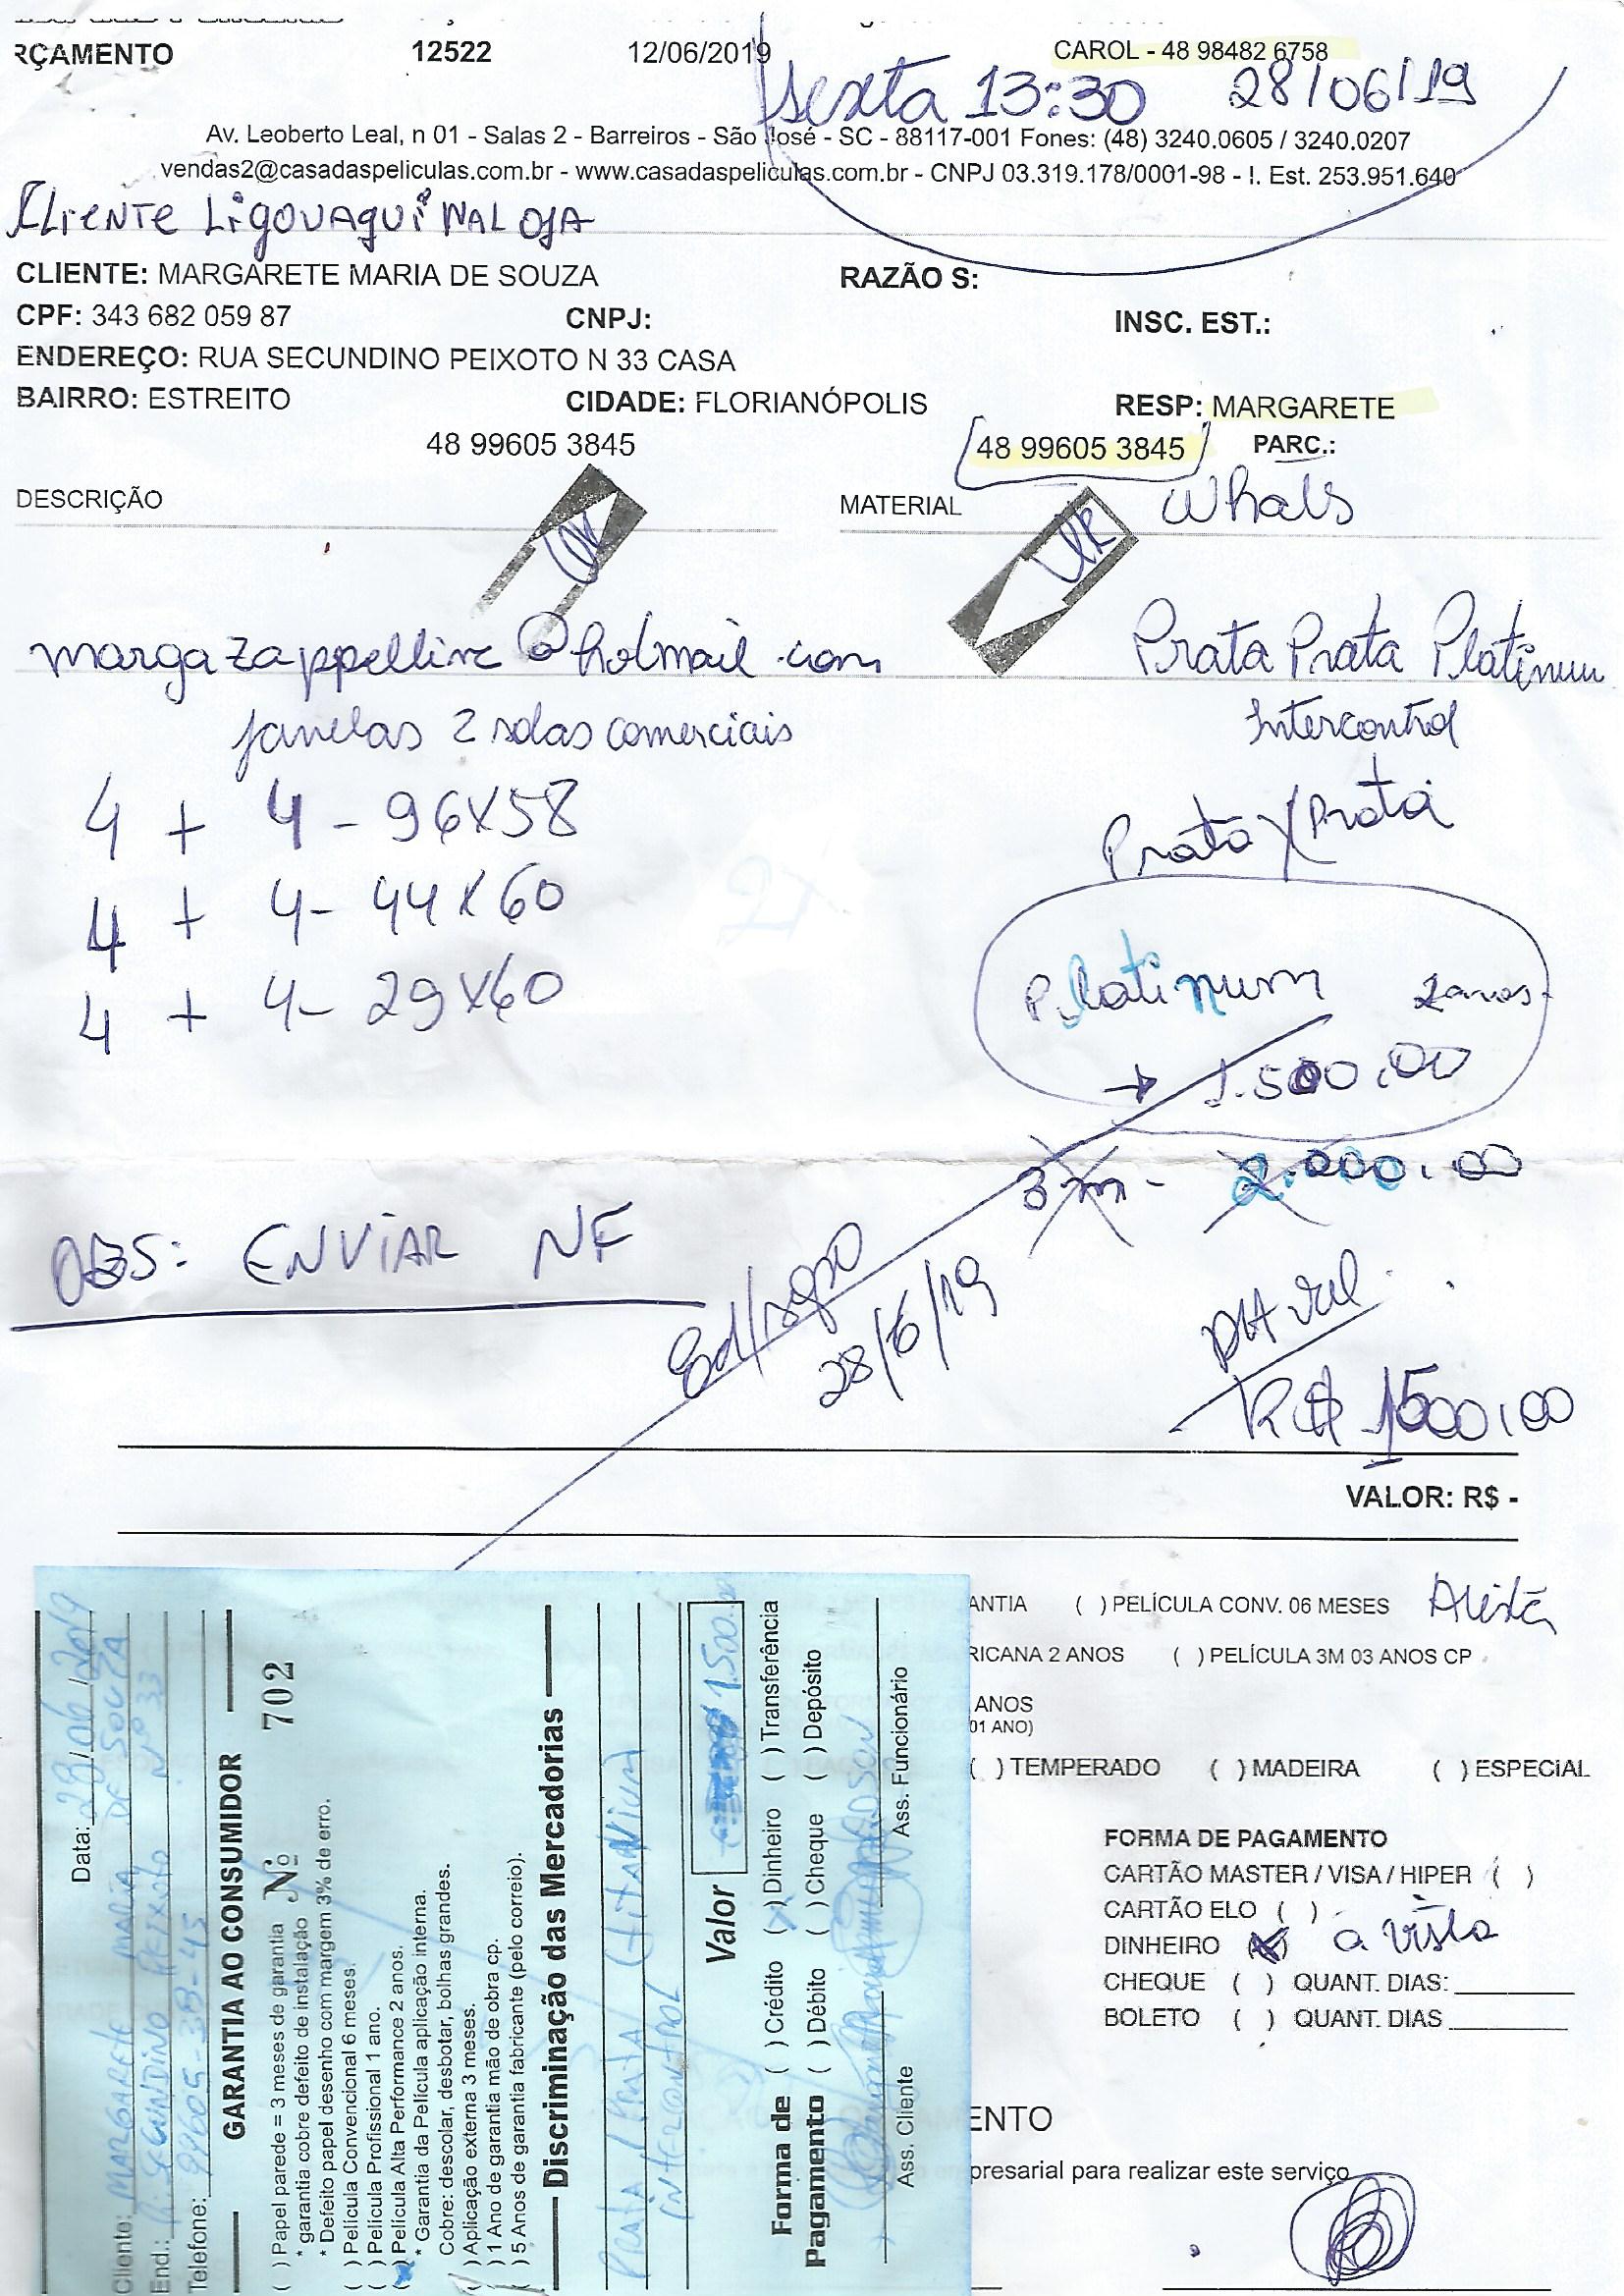 RÇAMENTO 12522 12/06/2019 CAROL - 48 98482 6758
Sexta 13:30 28/06/19
Av. Leoberto Leal, n 01 - Salas 2 - Barreiros - São José - SC - 88117-001 Fones: (48) 3240.0605 / 3240.0207
vendas2@casadaspeliculas.com.br - www.casadaspeliculas.com.br - CNPJ 03.319.178/0001-98 - I. Est. 253.951.640
CLIENTE LIGOU AQUI NA LOJA
CLIENTE: MARGARETE MARIA DE SOUZA RAZÃO S:
CPF: 343 682 059 87 CNPJ: INSC. EST.:
ENDEREÇO: RUA SECUNDINO PEIXOTO N 33 CASA
BAIRRO: ESTREITO CIDADE: FLORIANÓPOLIS RESP: MARGARETE
48 99605 3845 48 99605 3845 PARC.:
DESCRIÇÃO MATERIAL Whats
OK OK
margazappelline@hotmail.com Prata Prata Platinum
janelas 2 salas comerciais Intercontrol
4 + 4 - 96x58 Prata/Prata
4 + 4 - 44x60
4 + 4 - 29x60 Platinum 2 anos
→ 1.500,00
3m - 2.000,00
OBS: ENVIAR NF
28/6/19
R$ 1500,00
VALOR: R$ -
ANTIA ( ) PELÍCULA CONV. 06 MESES
RICANA 2 ANOS ( ) PELÍCULA 3M 03 ANOS CP
ANOS
01 ANO)
( ) TEMPERADO ( ) MADEIRA ( ) ESPECIAL
FORMA DE PAGAMENTO
CARTÃO MASTER / VISA / HIPER ( )
CARTÃO ELO ( )
DINHEIRO (X) a vista
CHEQUE ( ) QUANT. DIAS:
BOLETO ( ) QUANT. DIAS
ENTO
presarial para realizar este serviço
Data: 28/06/2019
Cliente: MARGARETE MARIA DE SOUZA
End.: R. SECUNDINO PEIXOTO Nº 33
Telefone: 99605-38-45
GARANTIA AO CONSUMIDOR
( ) Papel parede = 3 meses de garantia Nº 702
* garantia cobre defeito de instalação
* Defeito papel desenho com margem 3% de erro.
( ) Película Convencional 6 meses.
( ) Película Profissional 1 ano.
(x) Película Alta Performance 2 anos.
* Garantia da Película aplicação interna.
Cobre: descolar, desbotar, bolhas grandes.
) Aplicação externa 3 meses.
( ) 1 Ano de garantia mão de obra cp.
( ) 5 Anos de garantia fabricante (pelo correio).
Discriminação das Mercadorias
PRATA/PRATA (TITANIUM)
INTERCONTROL
Valor 1.500
Forma de Pagamento
( ) Crédito (x) Dinheiro ( ) Transferência
( ) Débito ( ) Cheque ( ) Depósito
Ass. Cliente Ass. Funcionário